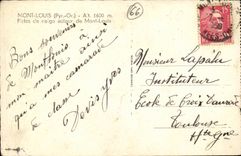 MONT-LOUIS (Pyr.-Or.) - Alt. 1600 m.
Pistes de neige autour de Mont-Louis
66
Bons souvenirs
de Montlouis à
mon maître ainsi
qu'à mes camarades
de classe
Denis Yves
Monsieur Lapébie
Instituteur
Ecole de Croix Daurade
Toulouse
Hte Gne